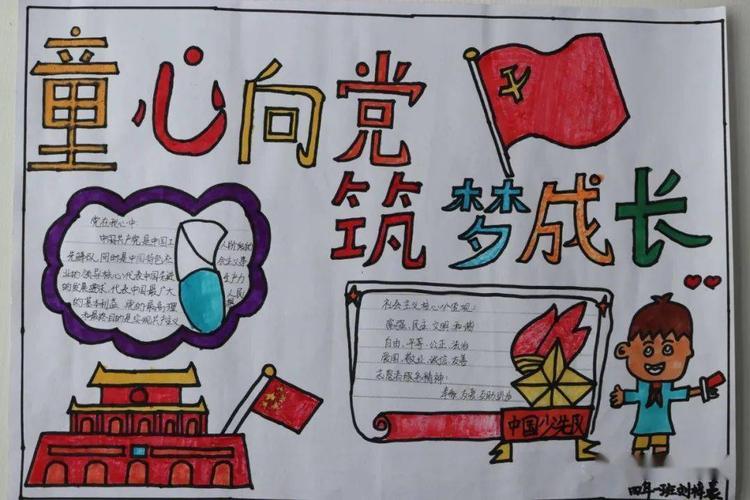 童心向党
筑梦成长
党在我心中
中国共产党是中国工人阶级的
先锋队,同时是中国特色社会主义事
业的领导核心,代表中国先进生产力
的发展要求,代表中国最广大人民
的基本利益 党的最高理想
和最终目的是实现共产主义
社会主义核心价值观:
富强、民主、文明、和谐
自由、平等、公正、法治
爱国、敬业、诚信、友善
志愿者服务精神:
奉献、友爱、互助
中国少先队
四年一班刘